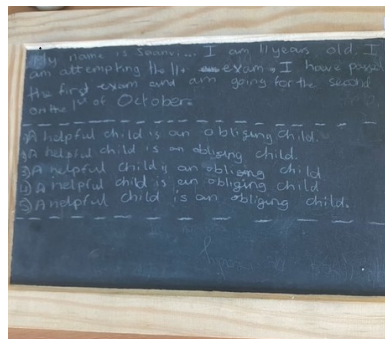 My name is Saanvi... I am 11 years old. I
am attempting the 11+ exam. I have passed
the first exam and am going for the second
on the 1st of October.
1) A helpful child is an obliging child.
2) A helpful child is an obliging child.
3) A helpful child is an obliging child
4) A helpful child is an obliging child
5) A helpful child is an obliging child.